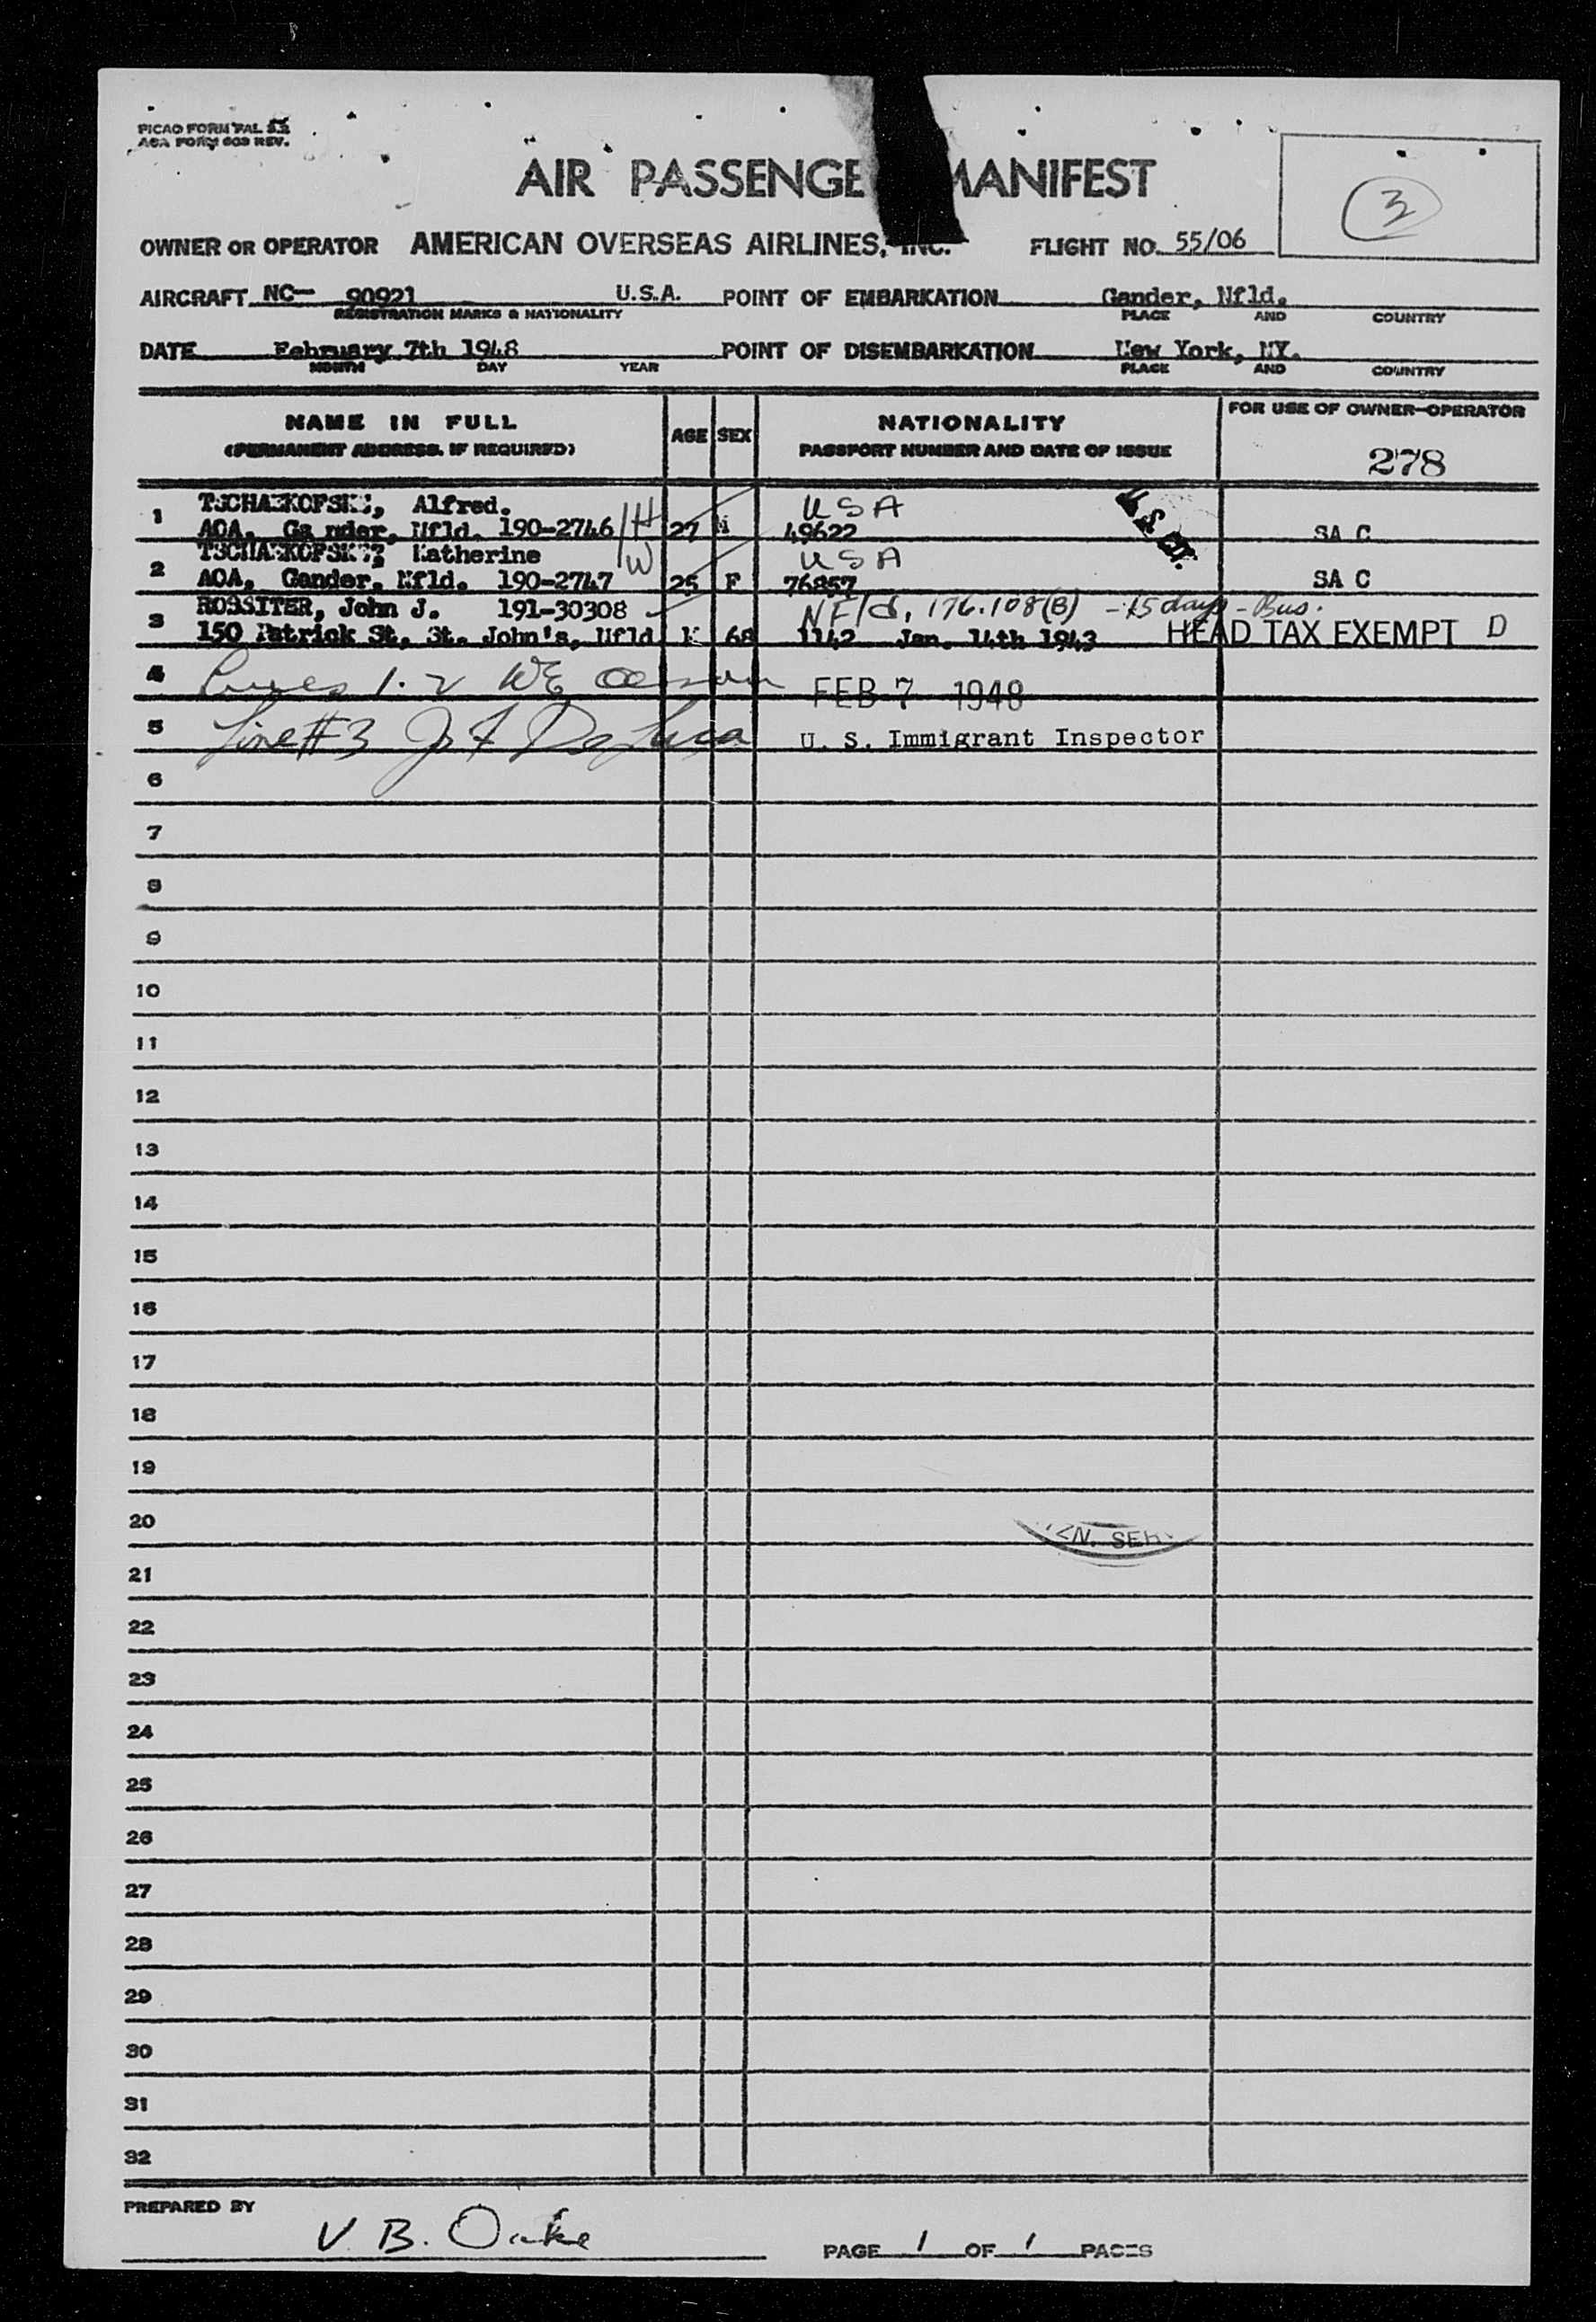 PICAO FORM PAL S3
AOA FORM 603 REV.
AIR PASSENGE MANIFEST
3
OWNER OR OPERATOR AMERICAN OVERSEAS AIRLINES, INC. FLIGHT NO. 55/06
AIRCRAFT NC— 90921 U.S.A. POINT OF EMBARKATION Gander, Nfld.
REGISTRATION MARKS & NATIONALITY PLACE AND COUNTRY
DATE February 7th 1948 POINT OF DISEMBARKATION New York, NY.
MONTH DAY YEAR PLACE AND COUNTRY
NAME IN FULL AGE SEX NATIONALITY FOR USE OF OWNER-OPERATOR
(PERMANENT ADDRESS, IF REQUIRED) PASSPORT NUMBER AND DATE OF ISSUE 278
Alfred. USA
1 AOA, Ga nder, Nfld. 190-2746 H 27 M 49622 SA C
Katherine W USA
2 AOA, Gander, Nfld. 190-2747 25 F 76857 SA C
ROSSITER, John J. 191-30308 NFld, 176.108(B) - 15 days - Bus.
3 150 Patrick St, St. John's, Nfld M 68 1142 Jan. 14th 1943 HEAD TAX EXEMPT D
4 Lines 1. 2 WE FEB 7 1948
5 Line #3 J F De Luca U. S. Immigrant Inspector
6
7
8
9
10
11
12
13
14
15
16
17
18
19
20 N. SER
21
22
23
24
25
26
27
28
29
30
31
32
PREPARED BY V. B. Oake PAGE 1 OF 1 PAGES